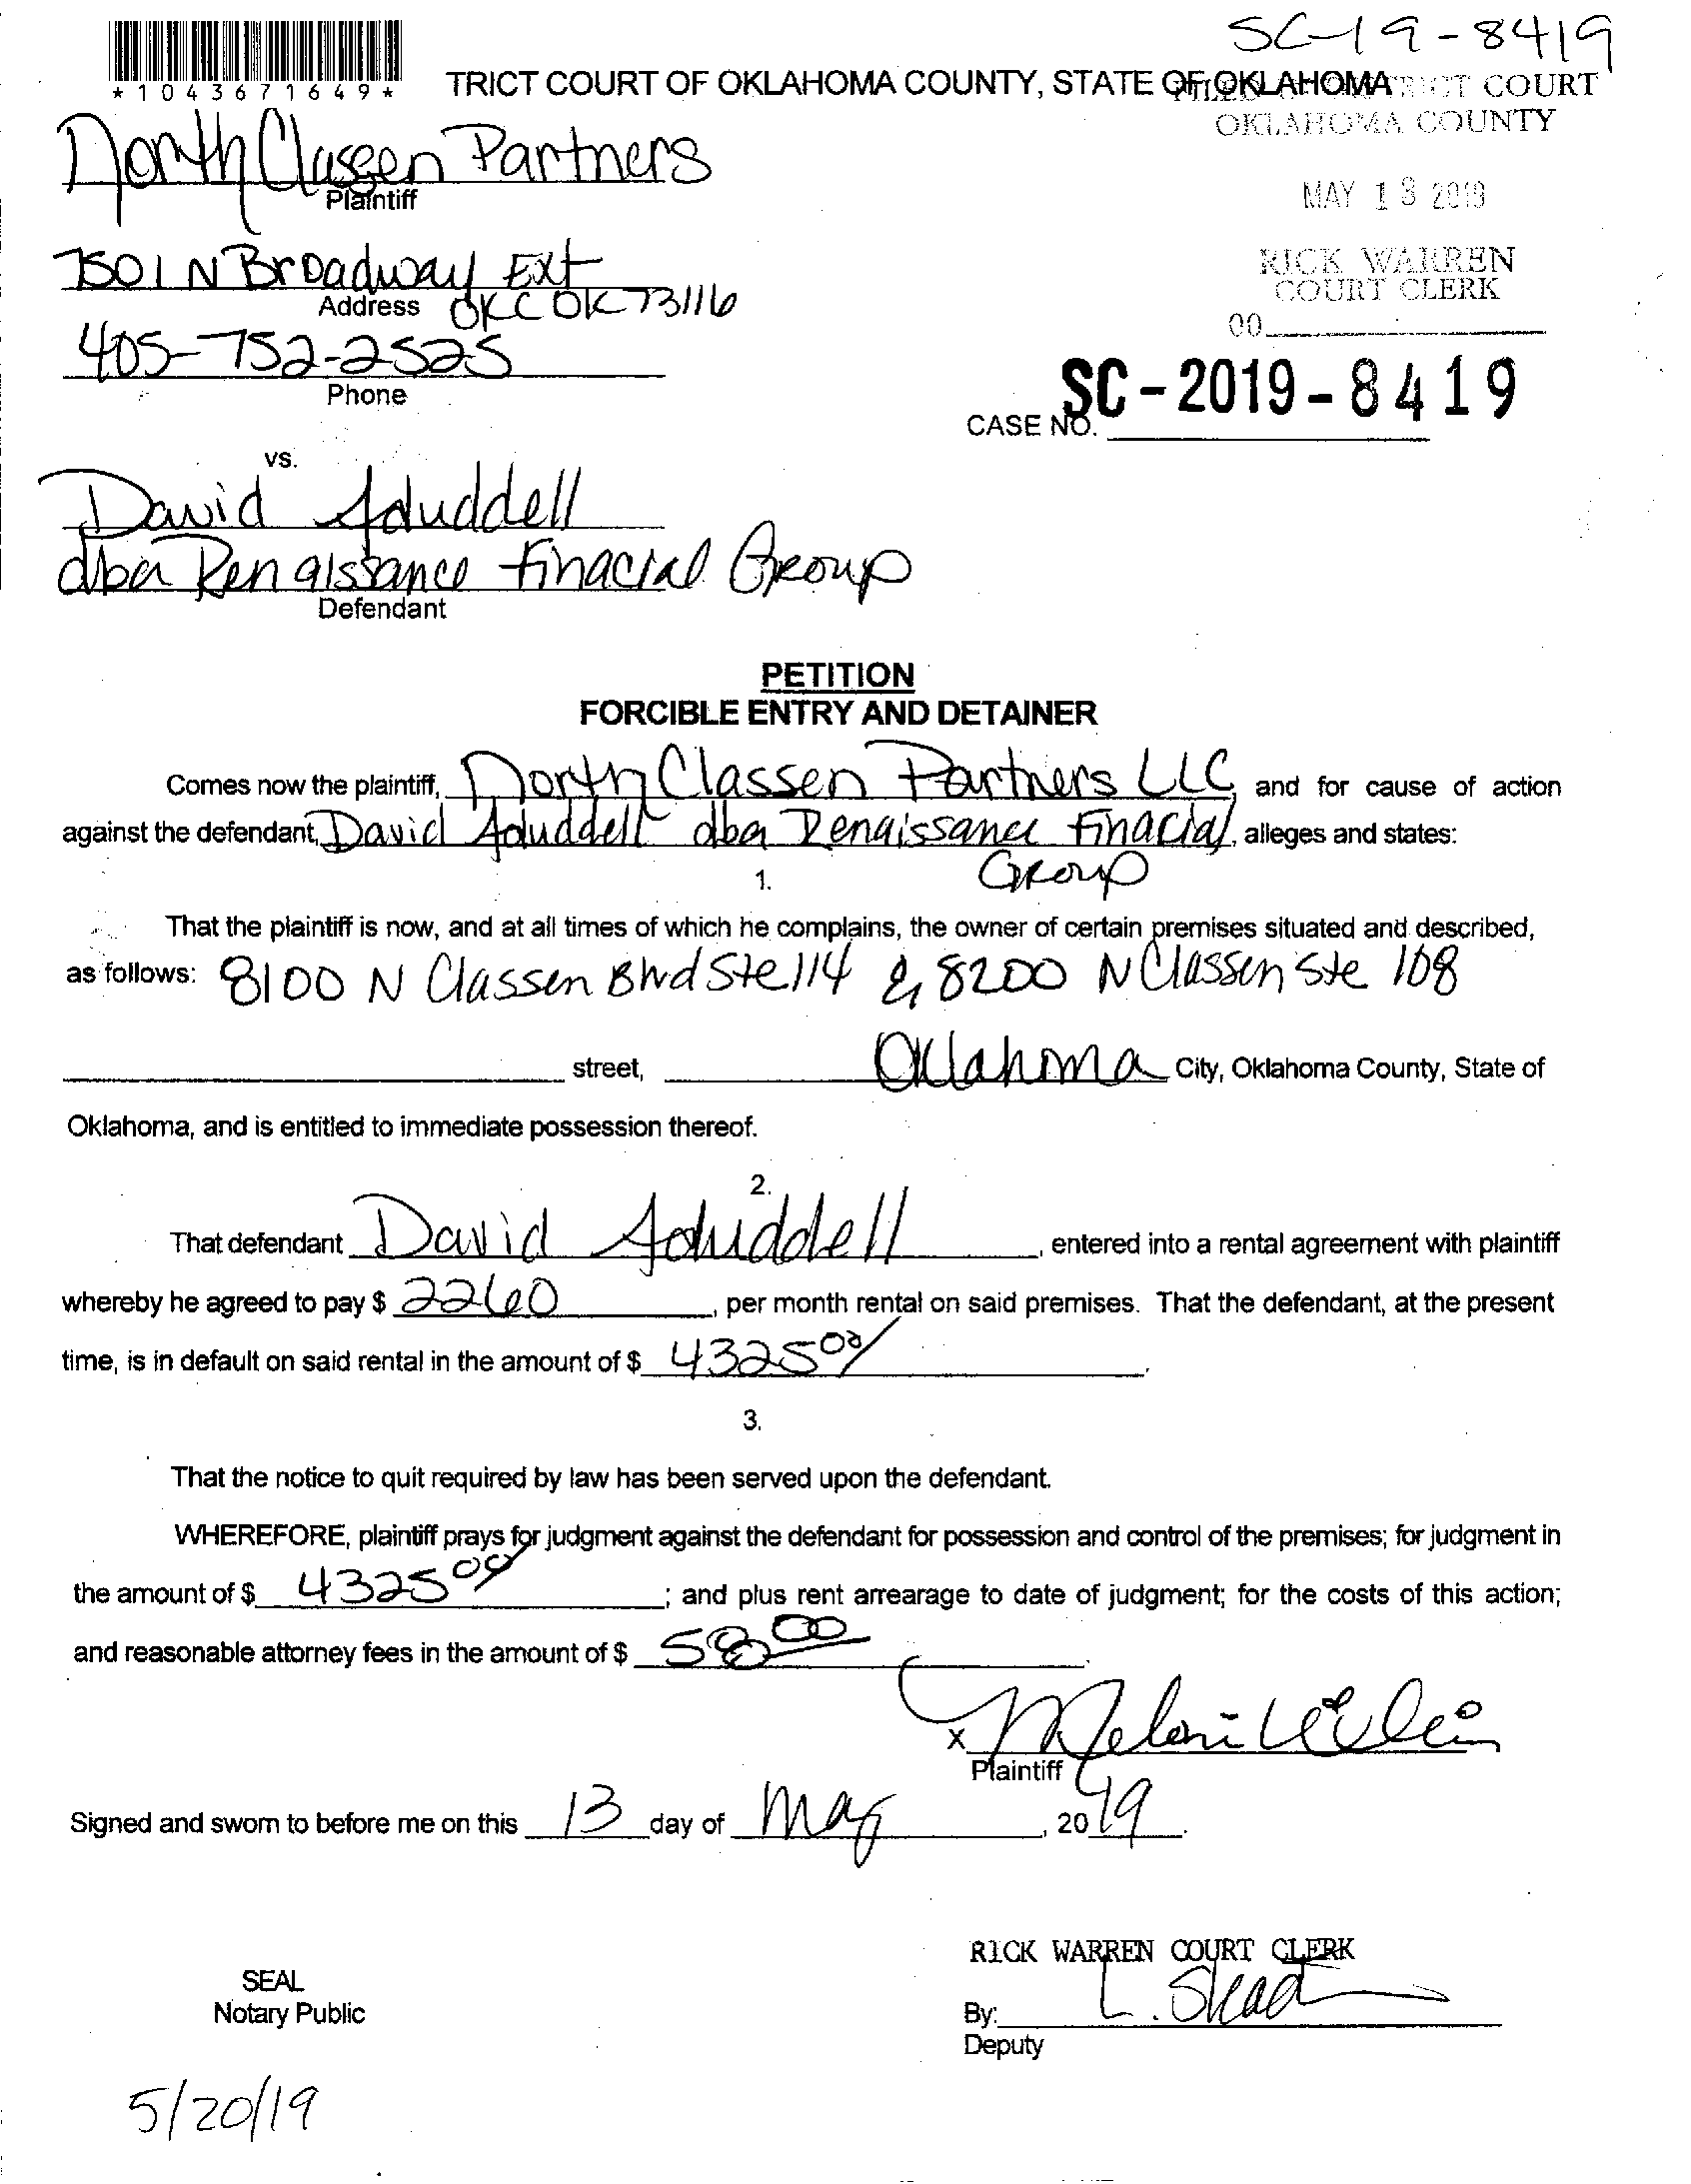 SC-19-8419
*1043671649*
TRICT COURT OF OKLAHOMA COUNTY, STATE OF OKLAHOMA
FILED COURT
OKLAHOMA COUNTY
North Classen Partners
Plaintiff
MAY 13 2019
7501 N Broadway Ext
Address OKC OK 73116
RICK WARREN
COURT CLERK
405-752-2525
Phone
00
CASE NO. SC-2019-8419
vs.
David Aduddell
dba Renaissance Finacial Group
Defendant
PETITION
FORCIBLE ENTRY AND DETAINER
Comes now the plaintiff, North Classen Partners LLC and for cause of action
against the defendant, David Aduddell dba Renaissance Finacial, alleges and states:
Group
1.
That the plaintiff is now, and at all times of which he complains, the owner of certain premises situated and described,
as follows: 8100 N Classen Blvd Ste 114 & 8200 N Classen Ste 108
street, Oklahoma City, Oklahoma County, State of
Oklahoma, and is entitled to immediate possession thereof.
2.
That defendant David Aduddell, entered into a rental agreement with plaintiff
whereby he agreed to pay $ 2260, per month rental on said premises. That the defendant, at the present
time, is in default on said rental in the amount of $ 4325 00.
3.
That the notice to quit required by law has been served upon the defendant.
WHEREFORE, plaintiff prays for judgment against the defendant for possession and control of the premises; for judgment in
the amount of $ 4325 00; and plus rent arrearage to date of judgment; for the costs of this action;
and reasonable attorney fees in the amount of $ 58 00.
X
Plaintiff
Signed and sworn to before me on this 13 day of May, 2019.
RICK WARREN COURT CLERK
SEAL
Notary Public
By: L.
Deputy
5/20/19